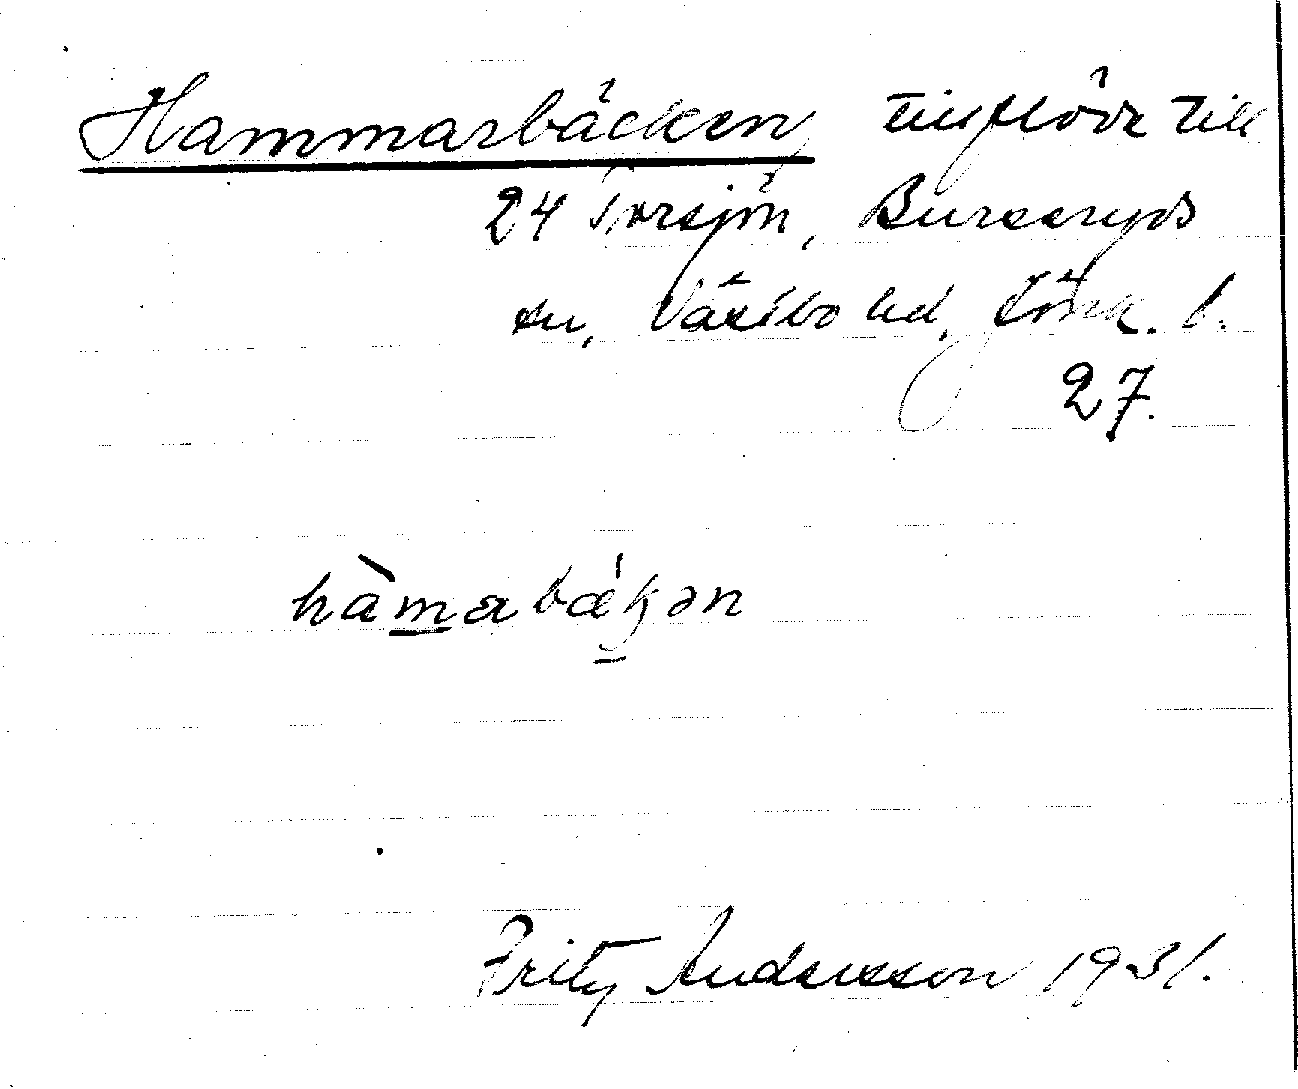 Hammarbäcken, tillflöde till
24 Torsjön, Burseryds
sn, Västbo hd, Jönk. l.
27.
hàmabǽkən
Fritz Andersson 1931.